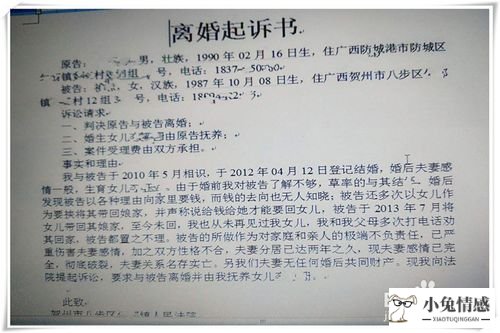 离婚起诉书
原告: 男,壮族,1990 年 02 月 16 日生,住广西防城港市防城区
镇 村 组 号,电话:1837
被告: 女,汉族,1987 年 10 月 08 日生,住广西贺州市八步区
镇 村 12 组 号,电话:
诉讼请求
一、判决原告与被告离婚;
二、婚生女儿 由原告抚养;
三、案件受理费由双方承担。
事实和理由
我与被告于 2010 年 5 月相识,于 2012 年 04 月 12 日登记结婚,婚后夫妻感
情一般,生育女儿 。由于婚前我对被告了解不够,草率的与其结 。婚后
发现被告以各种理由向家里要钱,而钱的去向也无人知晓;被告还多次以女儿作
为要挟将其带回娘家,并声称说给钱给她才能要回女儿,被告于 2013 年 7 月将
女儿带回其娘家,至今未回,我也从未再见过我女儿,我和我父母多次打电话劝
其回家,被告都置之不理。被告的所做作为对家庭和亲人的极端不负责任,已严
重伤害夫妻感情,加之双方性格不合,夫妻分居已达两年之久,现夫妻感情已完
全,彻底破裂,夫妻关系名存实亡。另我们夫妻无任何婚后共同财产。现我向法
院提起诉讼,要求与被告离婚并由我抚养女儿 。
此致
贺州市八步区 镇人民法院
小兔情感
XIAOTUQINGGAN